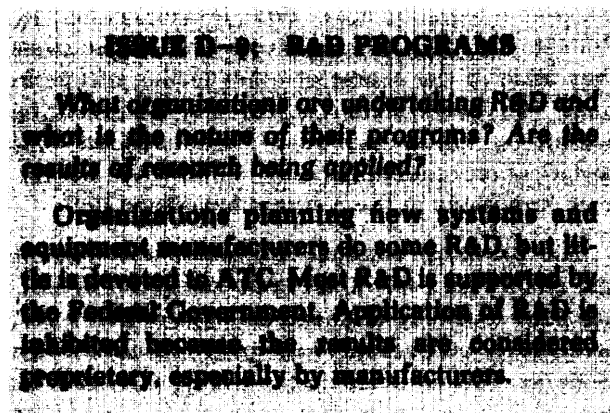 ISSUE D–9: R&D PROGRAMS
What organizations are undertaking R&D and
what is the nature of their programs? Are the
results of research being applied?
Organizations planning new systems and
equipment manufacturers do some R&D, but lit-
tle is devoted to ATC. Most R&D is supported by
the Federal Government. Application of R&D is
inhibited because the results are considered
proprietary, especially by manufacturers.